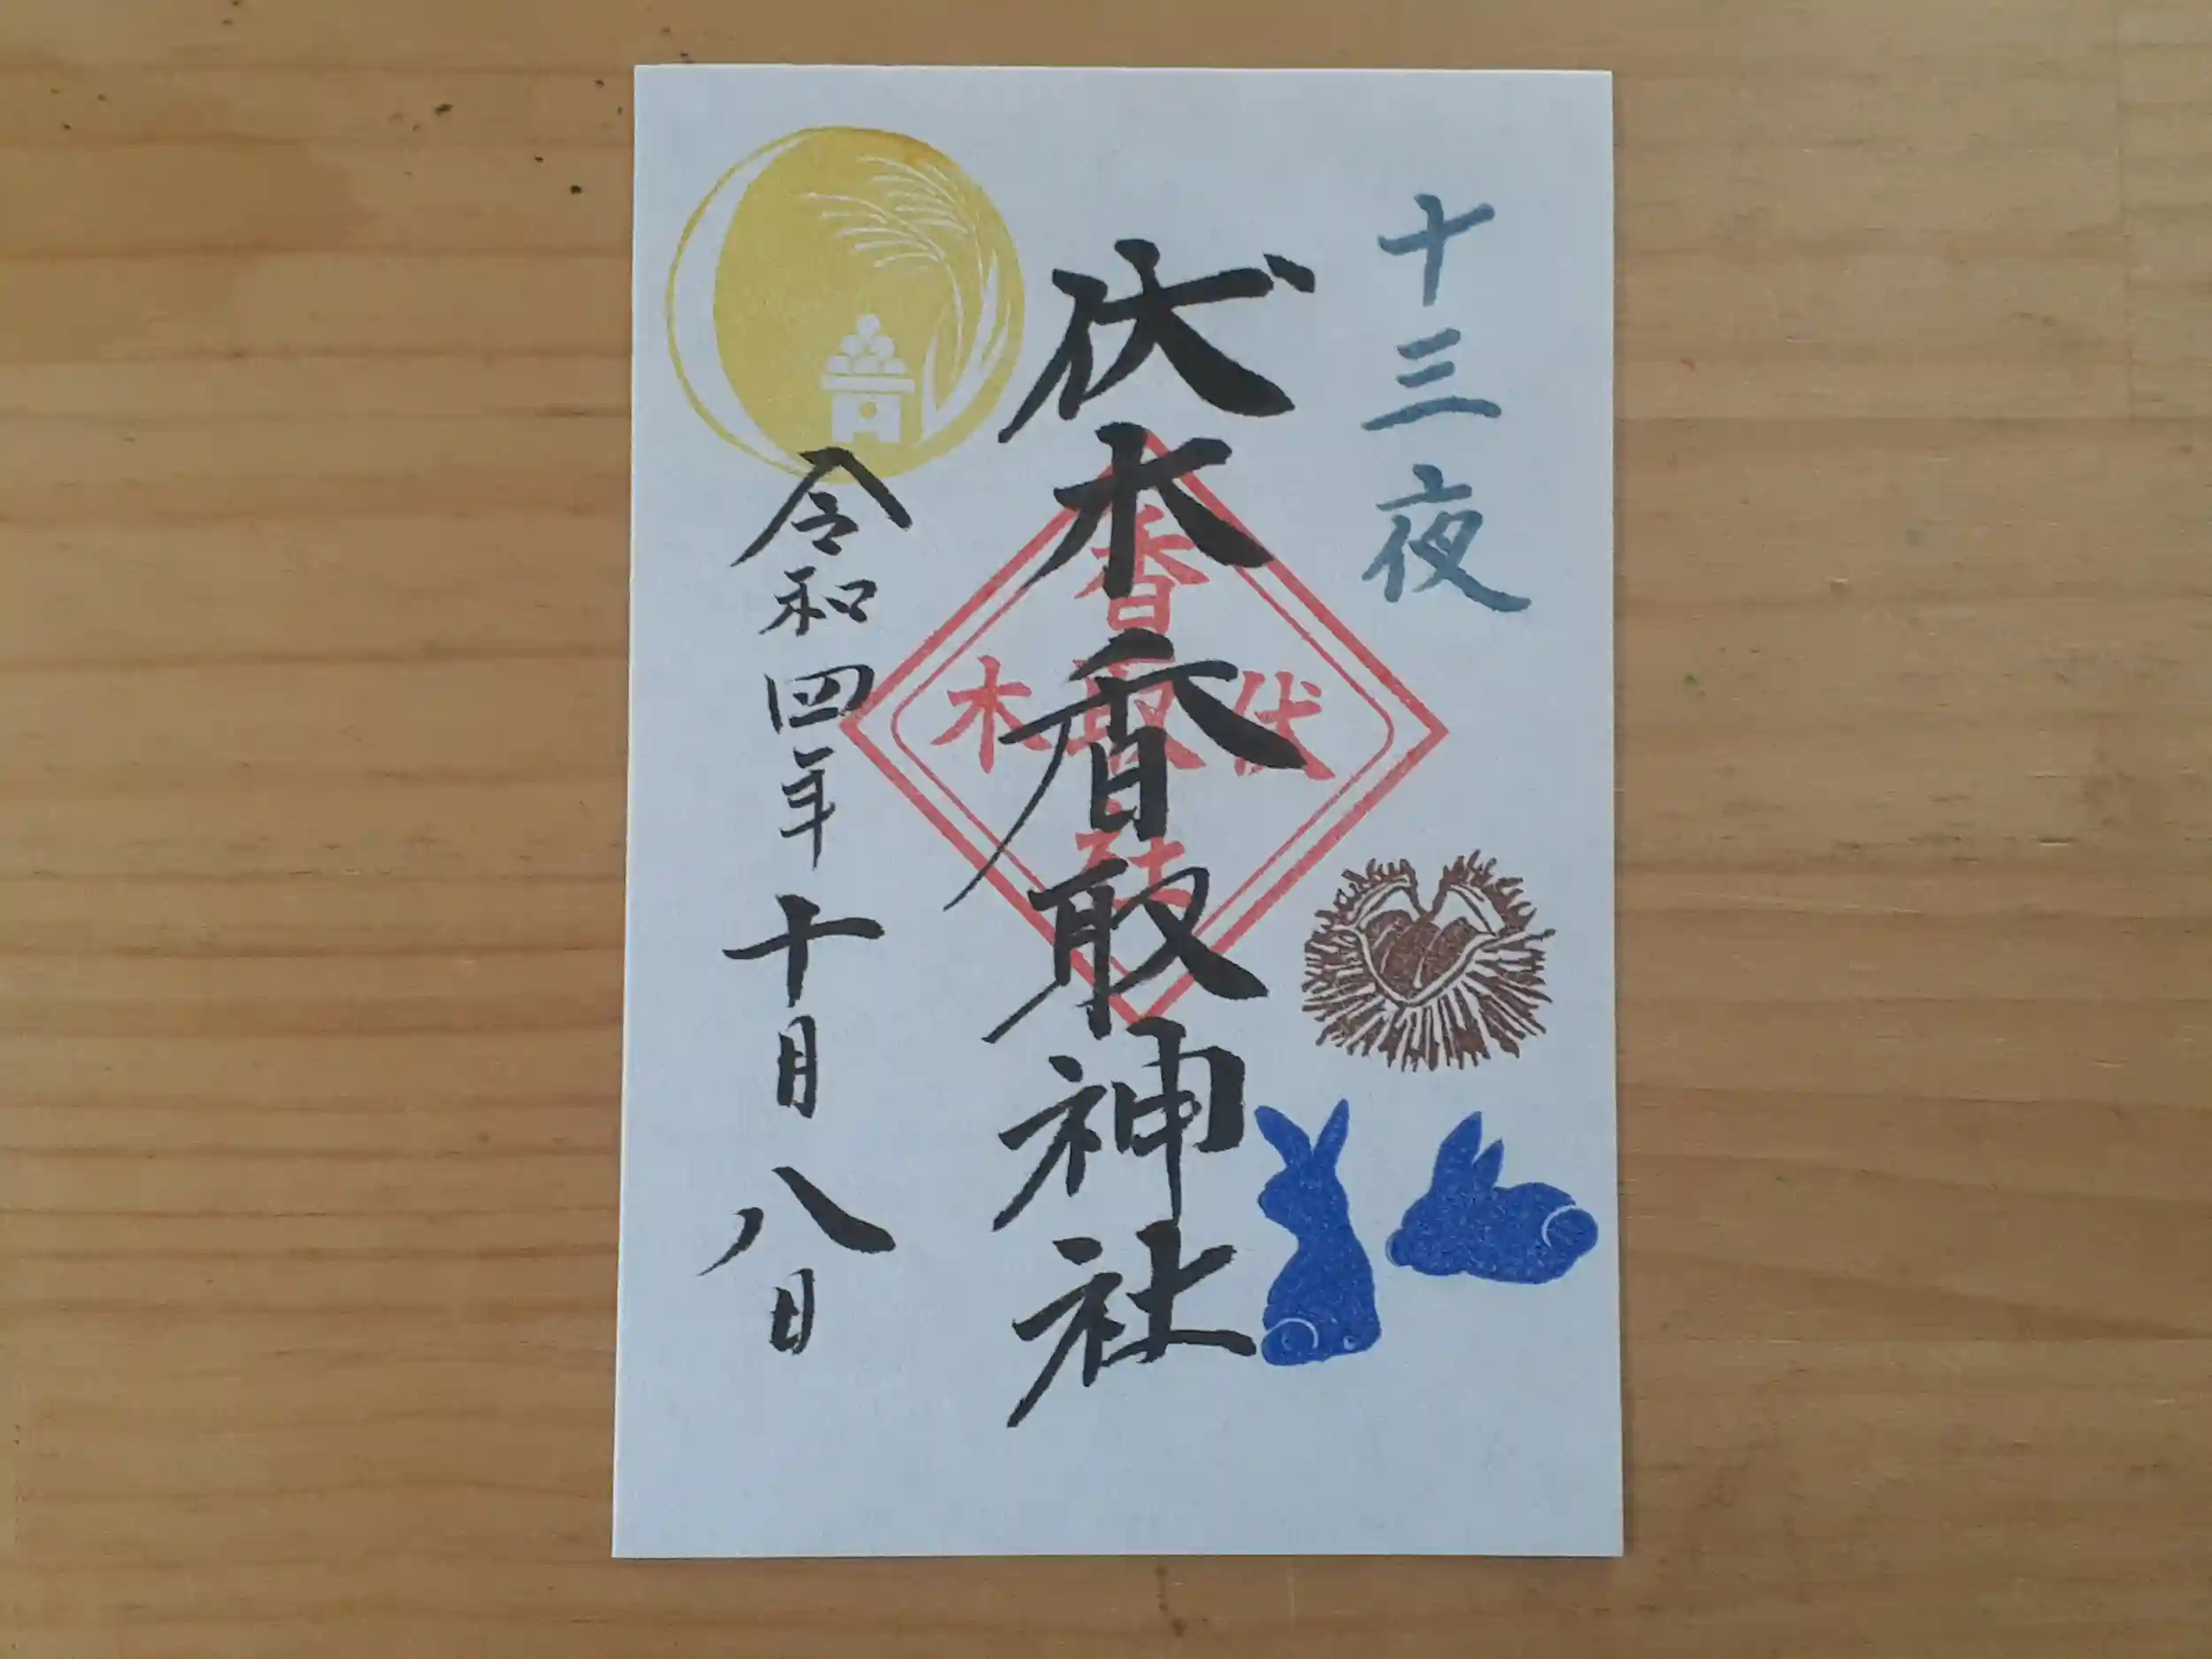 十三夜
伏木香取神社
香取社
伏木
令和四年十月八日